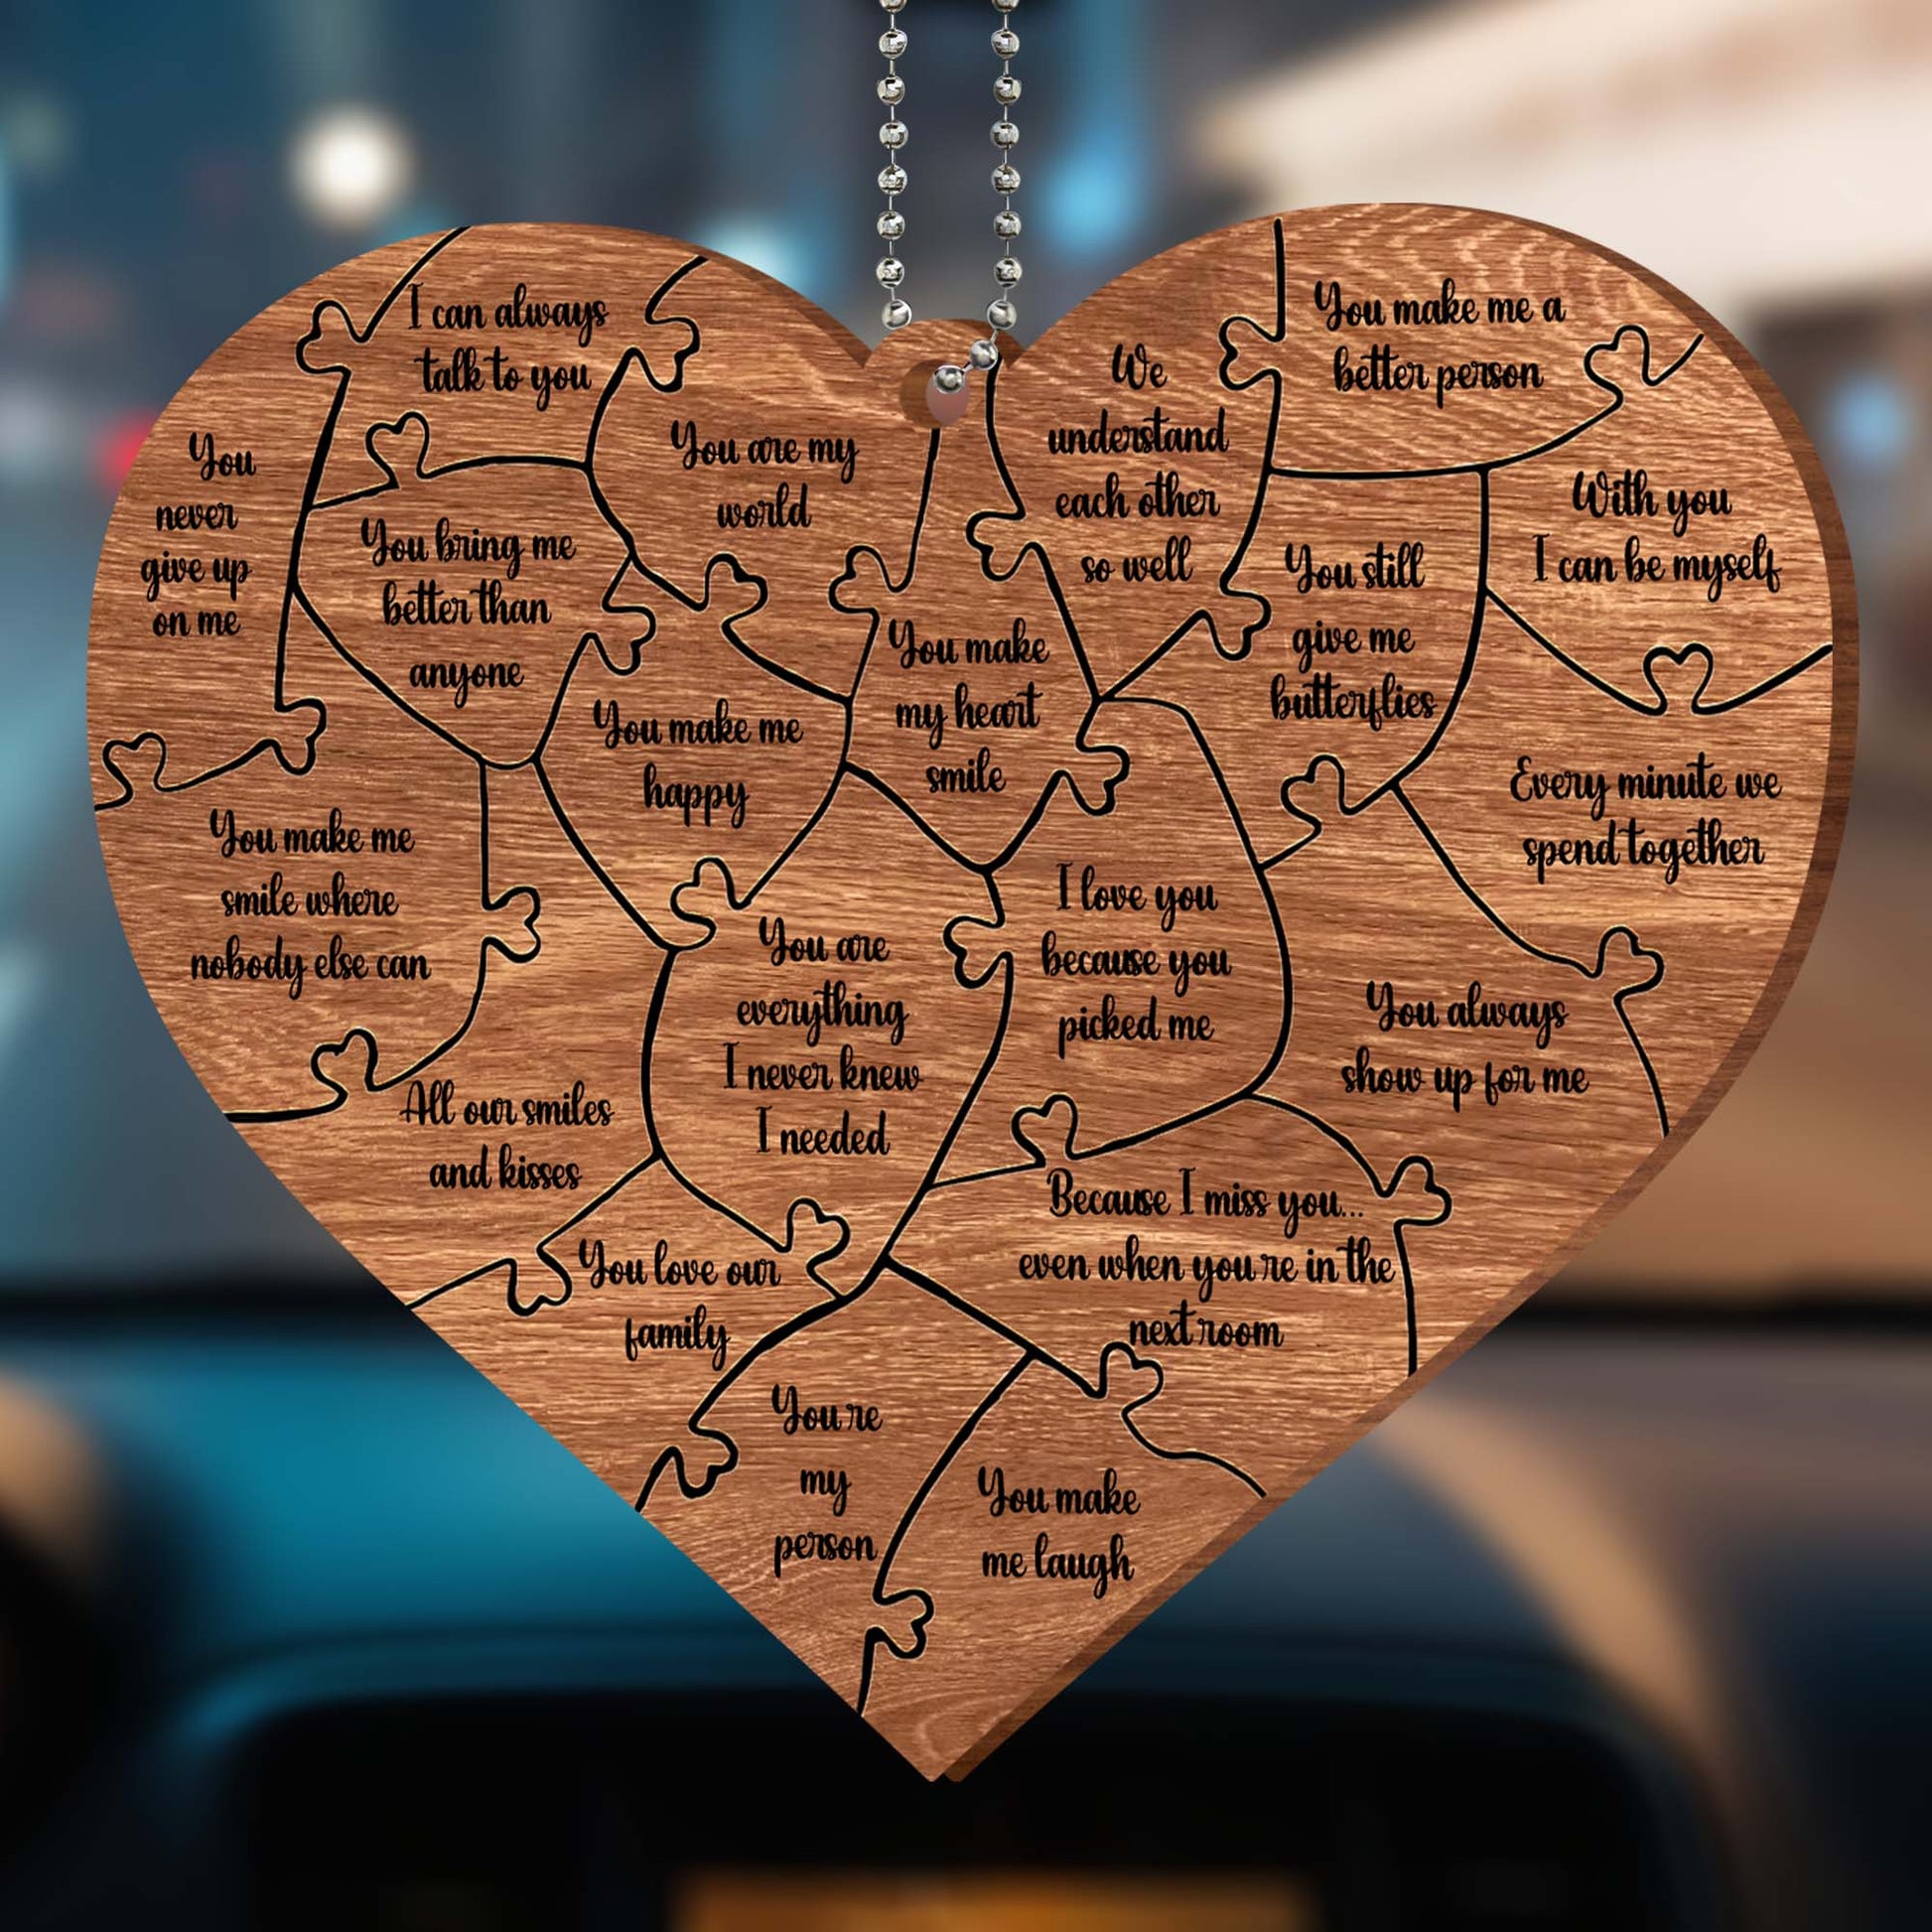 I can always
talk to you
You make me a
better person
You
never
give up
on me
You are my
world
We
understand
each other
so well
With you
I can be myself
You bring me
better than
anyone
You still
give me
butterflies
You make
my heart
smile
You make me
happy
Every minute we
spend together
You make me
smile where
nobody else can
You are
everything
I never knew
I needed
I love you
because you
picked me
You always
show up for me
All our smiles
and kisses
Because I miss you...
even when you're in the
next room
You love our
family
You're
my
person
You make
me laugh